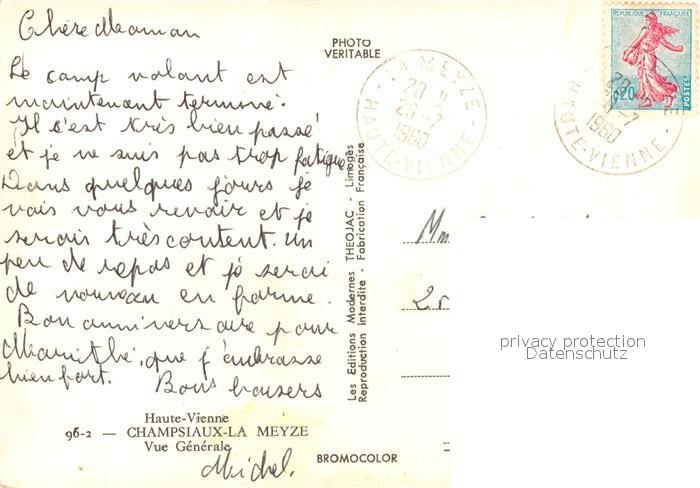 Chère Maman
Le camp volant est
maintenant terminé.
Il c'est très bien passé
et je ne suis pas trop fatigué
Dans quelques jours je
vais vous revoir et je
serais très content. Un
peu de repos et je serai
de nouveau en forme.
Bon anniversaire pour
que j'embrasse
bien fort. Bons baisers
Michel.
Haute-Vienne
96-2 — CHAMPSIAUX-LA MEYZE
Vue Générale
PHOTO
VERITABLE
BROMOCOLOR
Les Editions Modernes THEOJAC - Limoges
Reproduction interdite - Fabrication Française
LA MEYZE
20 H
26-7
1960
HAUTE-VIENNE
REPUBLIQUE FRANÇAISE
0,20
POSTES
20
-7
1960
HAUTE-VIENNE
privacy protection
Datenschutz